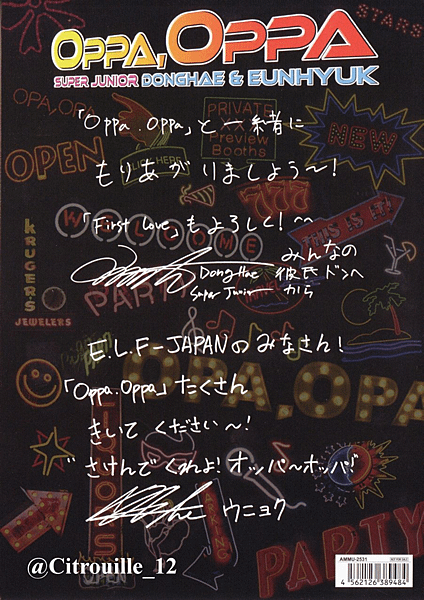 OPPA, OPPA
SUPER JUNIOR DONGHAE & EUNHYUK
STARS
OPA, OPA
PRIVATE
Preview
Booths
OPEN
NEW
「Oppa.Oppa」と一緒に
もりあがりましょう〜!
777
WELCOME
THIS IS IT!
「First Love」もよろしく!^^
KRUGER'S
JEWELERS
PARTY
みんなの
DongHae 彼氏ドンヘ
Super Junior から
E.L.F-JAPANのみなさん!
「Oppa.Oppa」たくさん
OPA, OPA
きいてください〜!
"さけんでくれよ!オッパ〜オッパ!"
ウニョク
OPEN
PARTY
@Citrouille_12
AMMU-2531
4 562126 389484